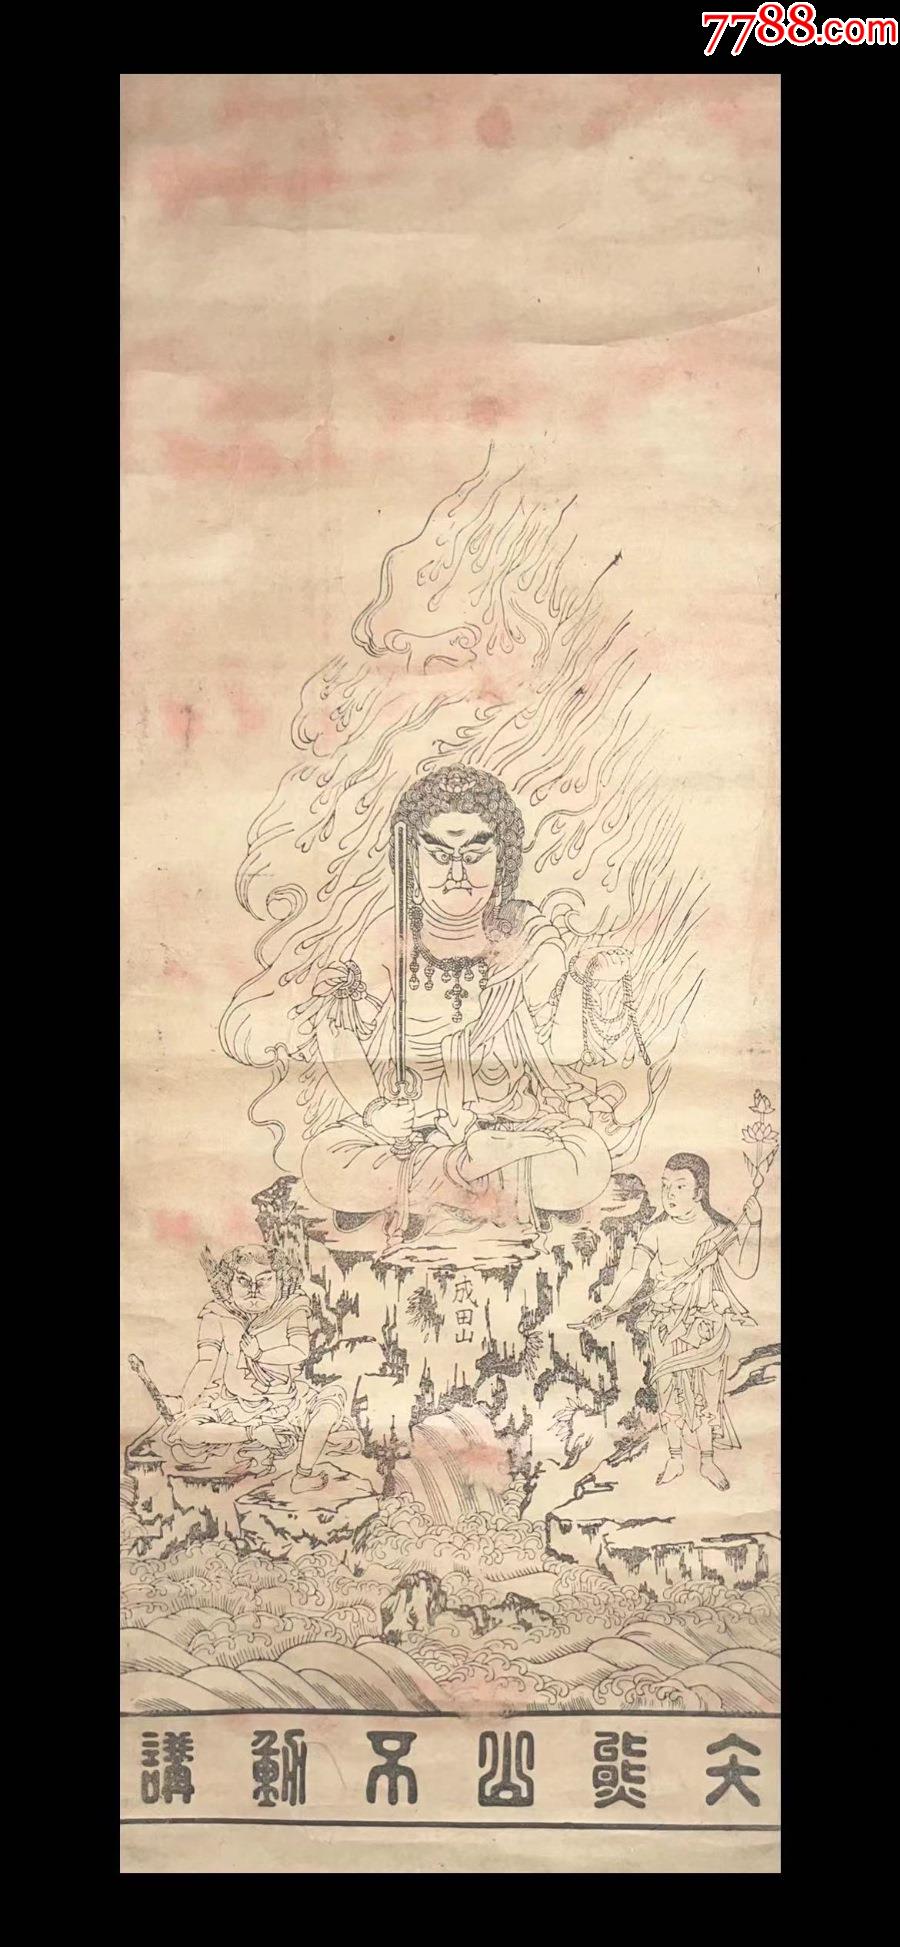 7788.com
成田山
天熊山不動講